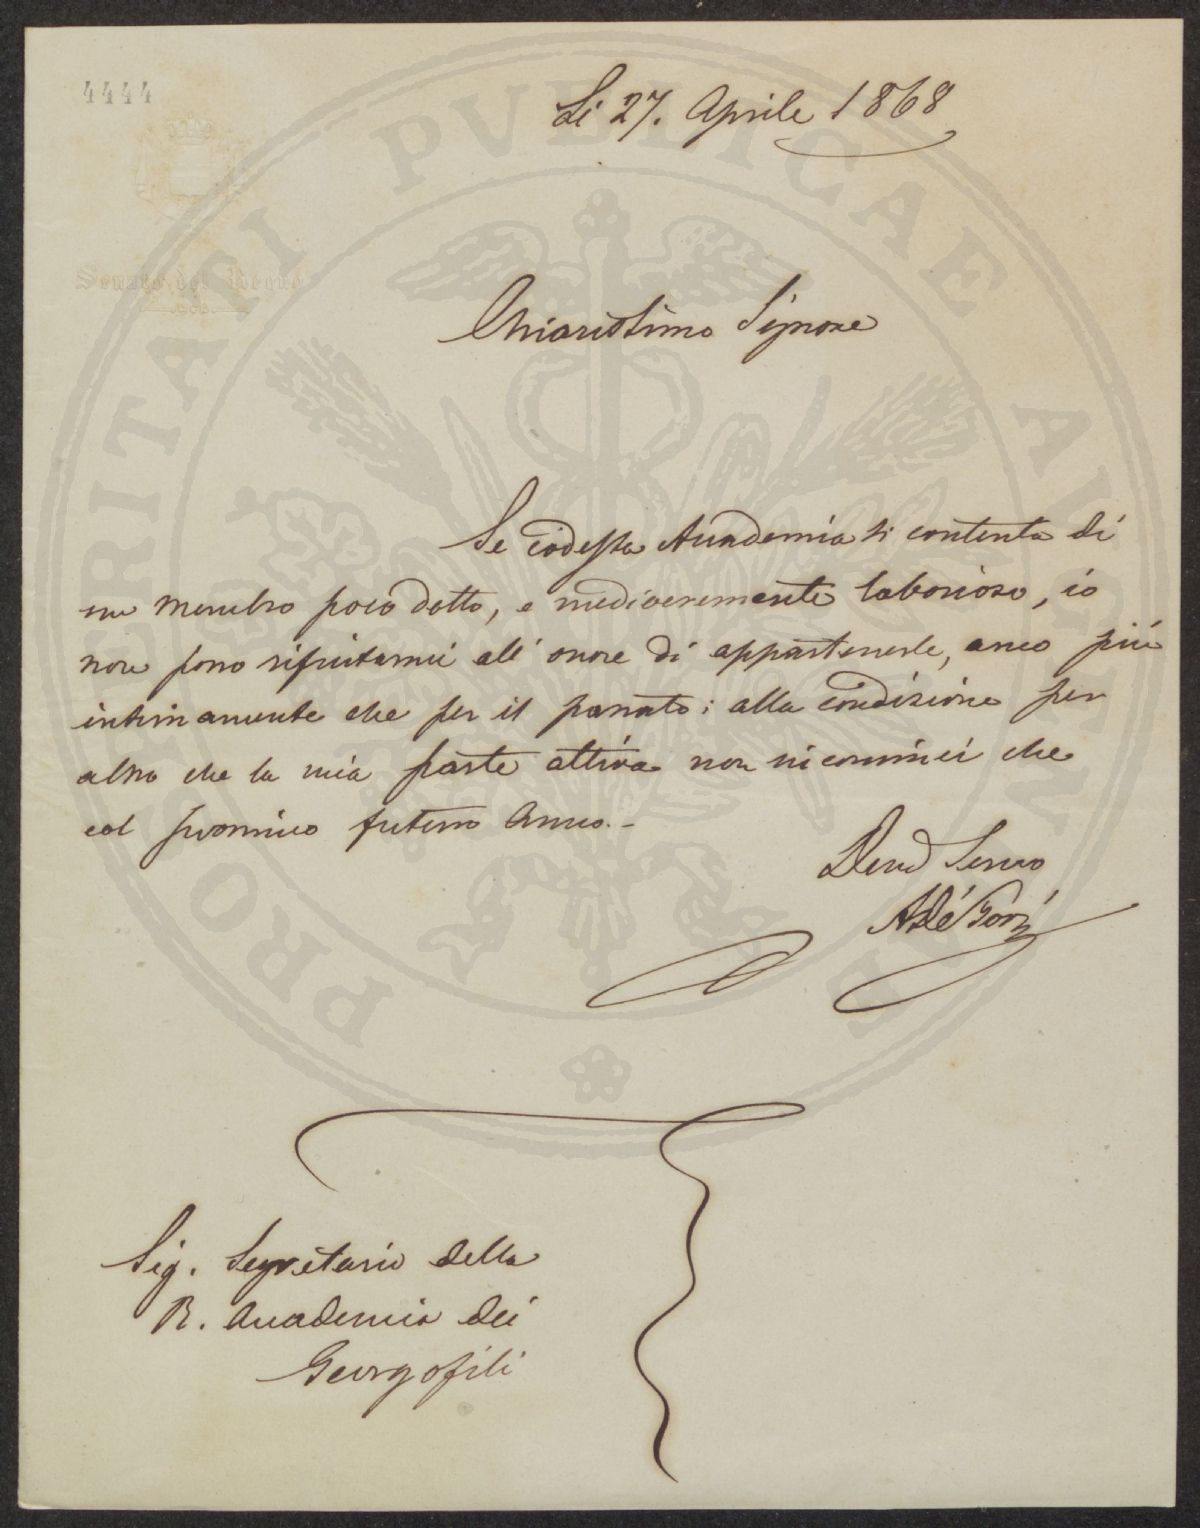 4444
Li 27. Aprile 1868
Senato del Regno
Chiarissimo Signore
Se codesta Accademia si contenta di
un membro poco dotto, e mediocremente laborioso, io
non posso rifiutarmi all' onore di appartenerle, anco più
intimamente che per il passato; alla condizione per
altro che la mia parte attiva non incominci che
col prossimo futuro Anno.-
Dev.º Servo
Sig. Segretario della
R. Accademia dei
Georgofili
PROSPERITATI PVBLICAE AVGENDAE